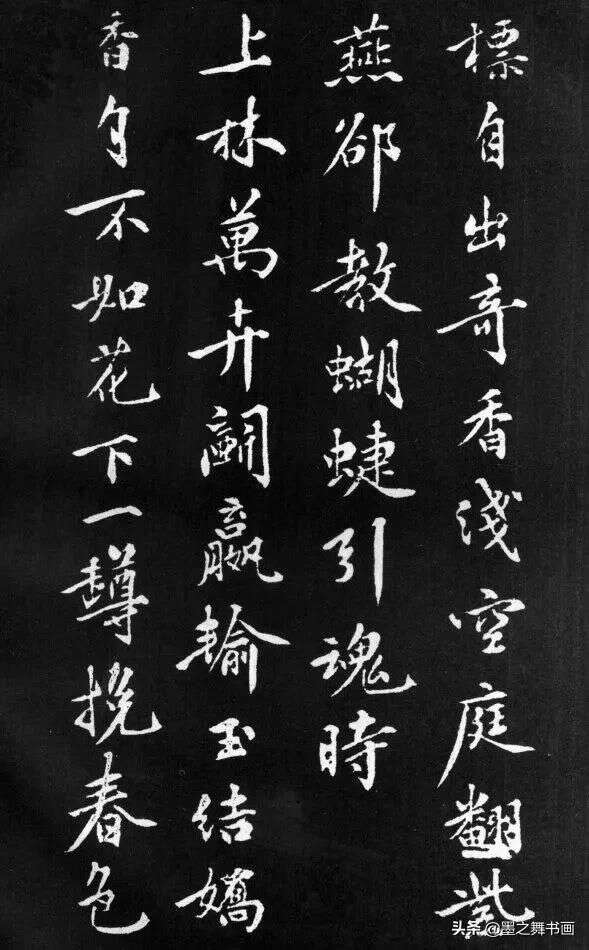 標自出奇香淺空庭翻紫
燕卻教蝴蜨引魂時
上林萬卉鬭贏輸玉結嬌
香勻不如花下一罇挽春色
头条 @墨之舞书画